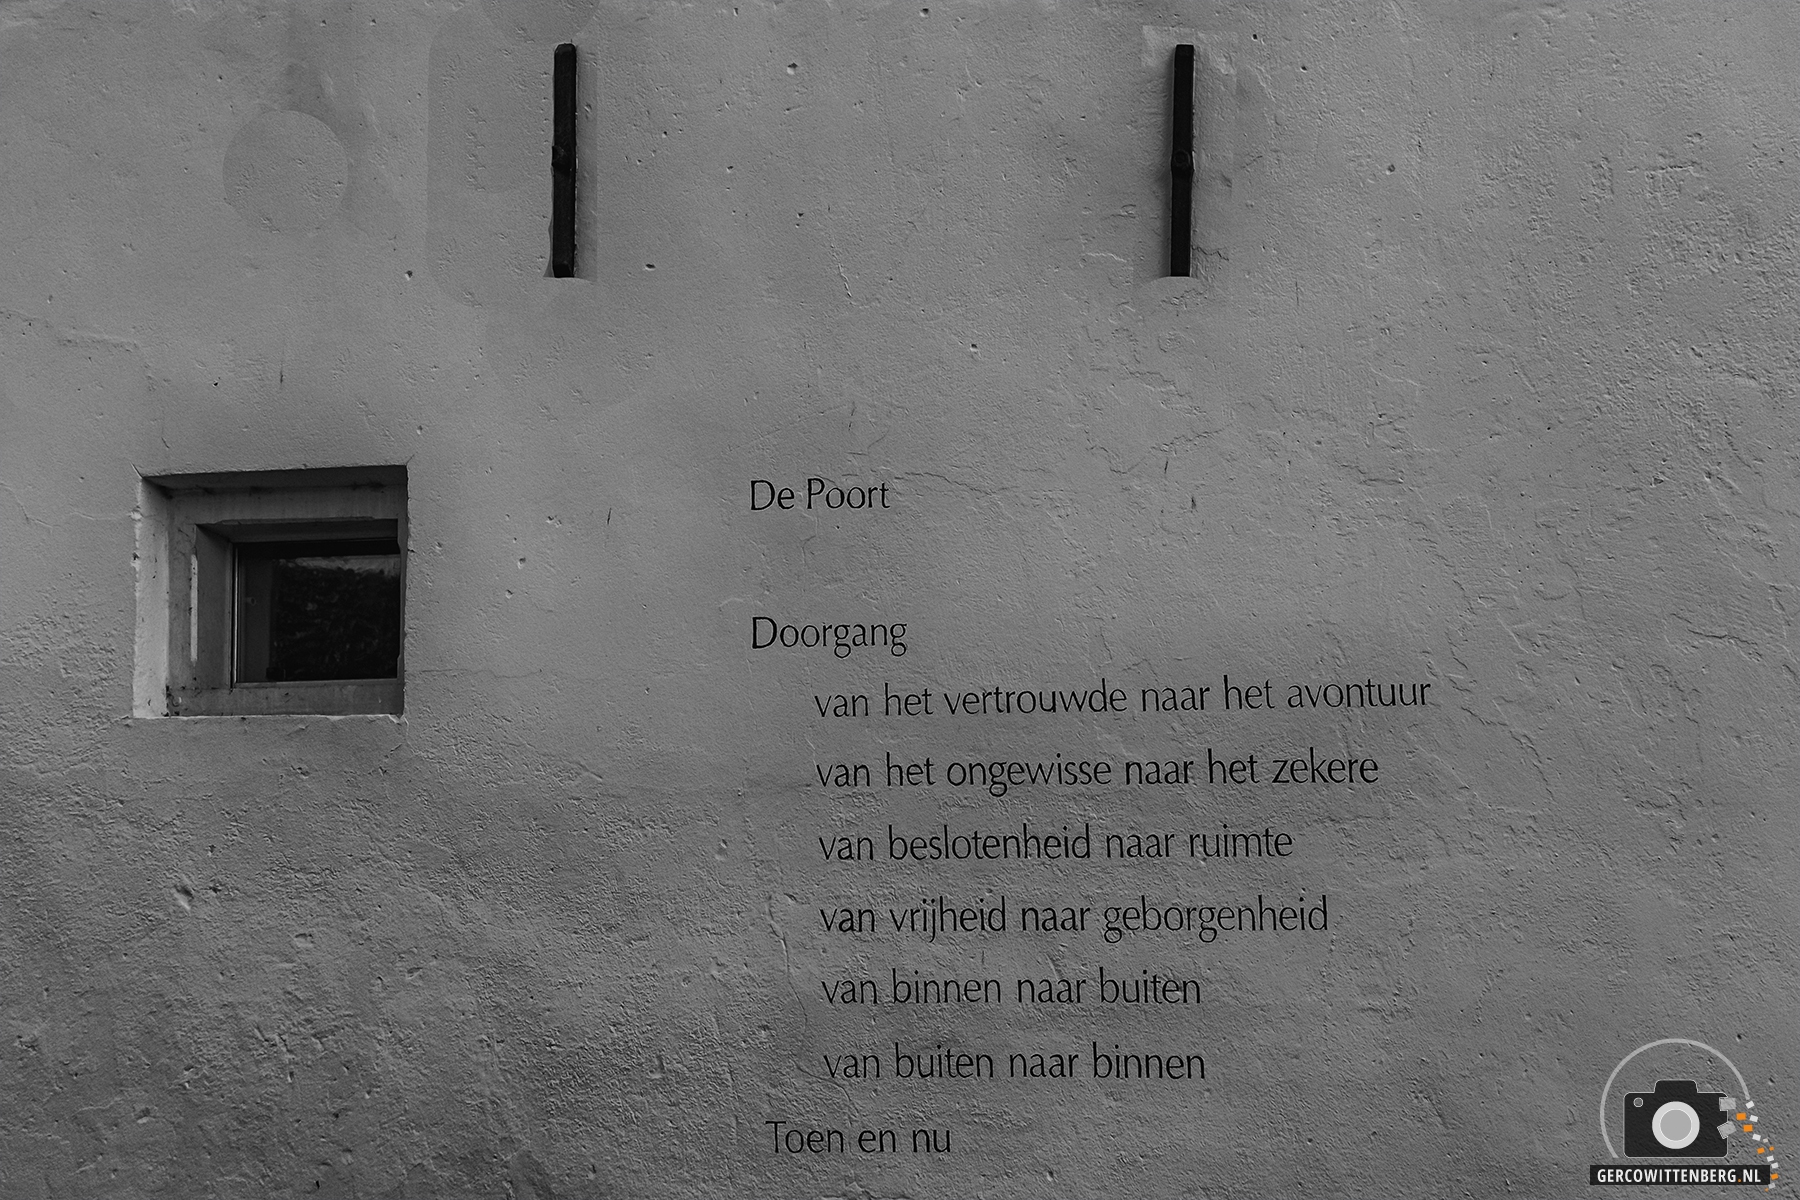 De Poort
Doorgang
van het vertrouwde naar het avontuur
van het ongewisse naar het zekere
van beslotenheid naar ruimte
van vrijheid naar geborgenheid
van binnen naar buiten
van buiten naar binnen
Toen en nu
GERCOWITTENBERG.NL